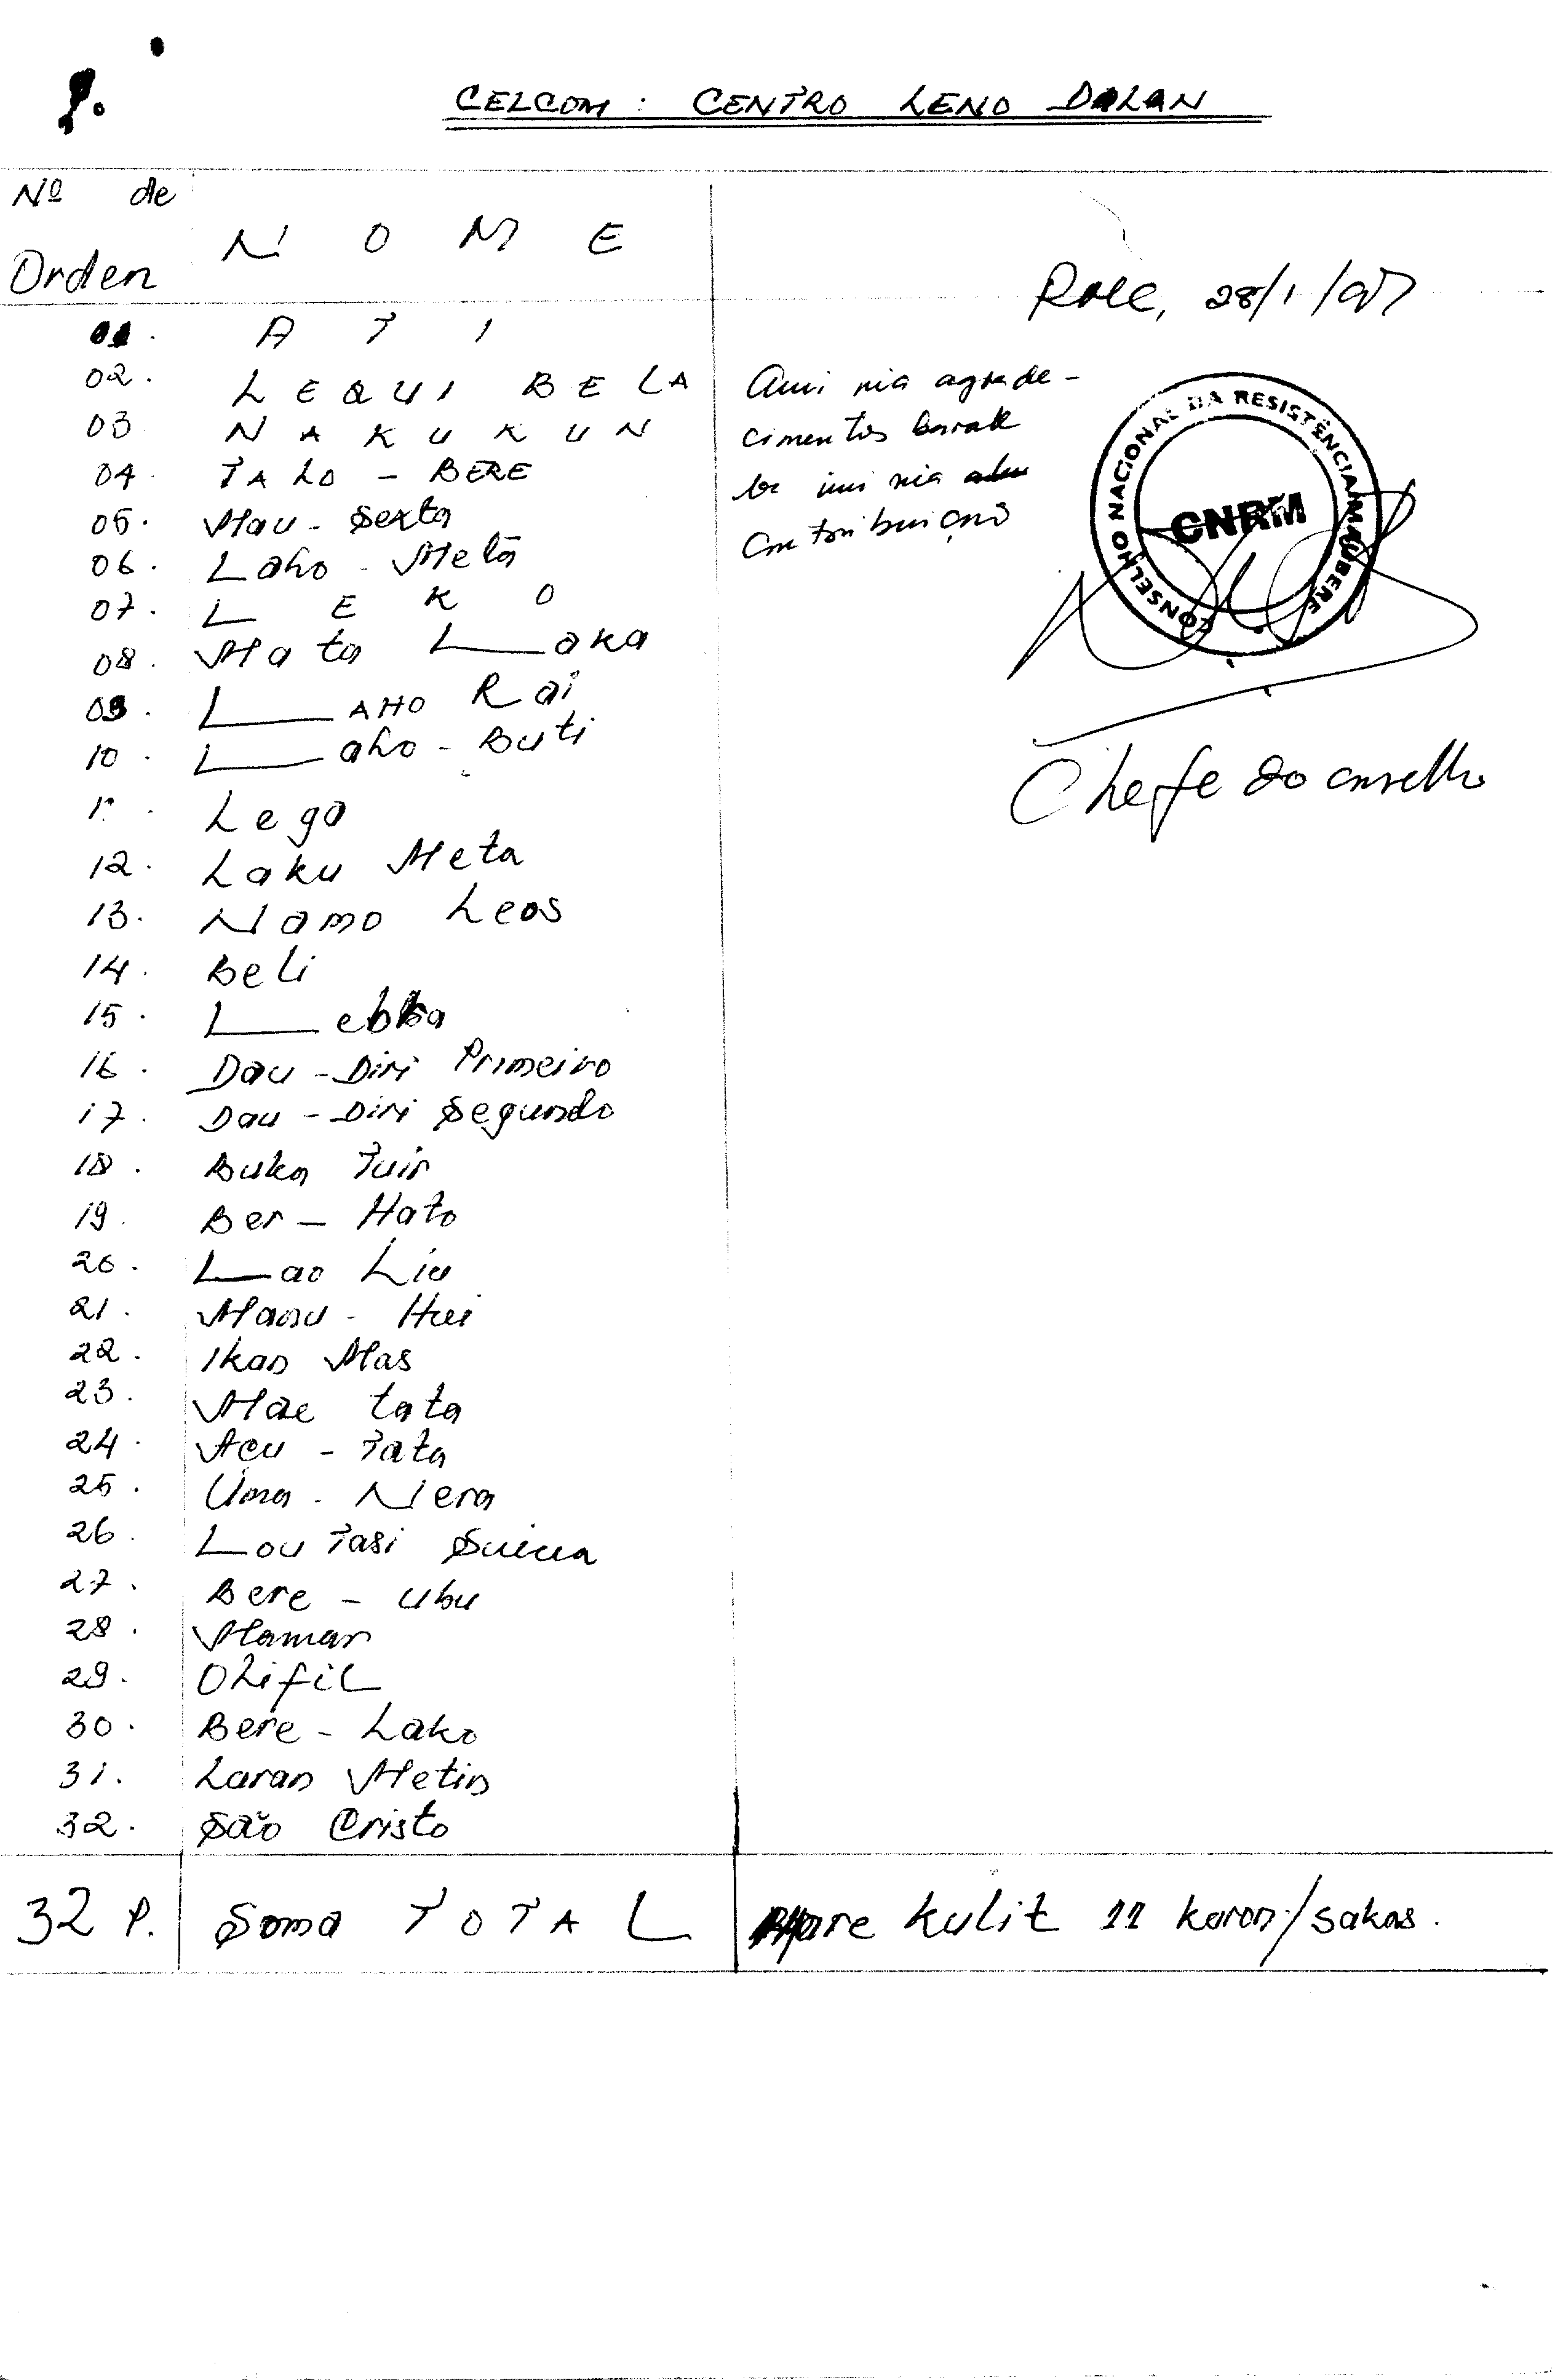 CELCOM: CENTRO LENO DALAN
Nº de
Orden
NOME
Role, 28/1/97
01. ATI
02. LEQUI BELA
03 NAKUKUN
04. TALO - BERE
05. Mau - Sexta
06. Laho - Meta
07. LEKO
08. Mata Laka
09. LAHO Rai
10. Laho - Buti
Lego
12. Laku Meta
13. Namo Leos
14. Beli
15.
16. Dau - Diri Primeiro
17. Dau - Diri Segundo
18. Buka Tuir
19. Ber - Hato
20. Lao Liu
21. Manu - Hui
22. Ikan Mas
23. Mae tata
24. Acu - Tata
25. Uma - Nera
26. Lou Tasi
27. Bere - Ubu
28. Mamar
29. Olifil
30. Bere - Lako
31. Laran Metin
32. São Cristo
Ami nia agrade-
cimentos barak
ba imi nia
contribuiçaõ
CONSELHO NACIONAL DA RESISTÊNCIA MAUBERE
CNRM
Chefe do conselho
32 P. Soma TOTAL
Hare kulit 11 karon/sakas.